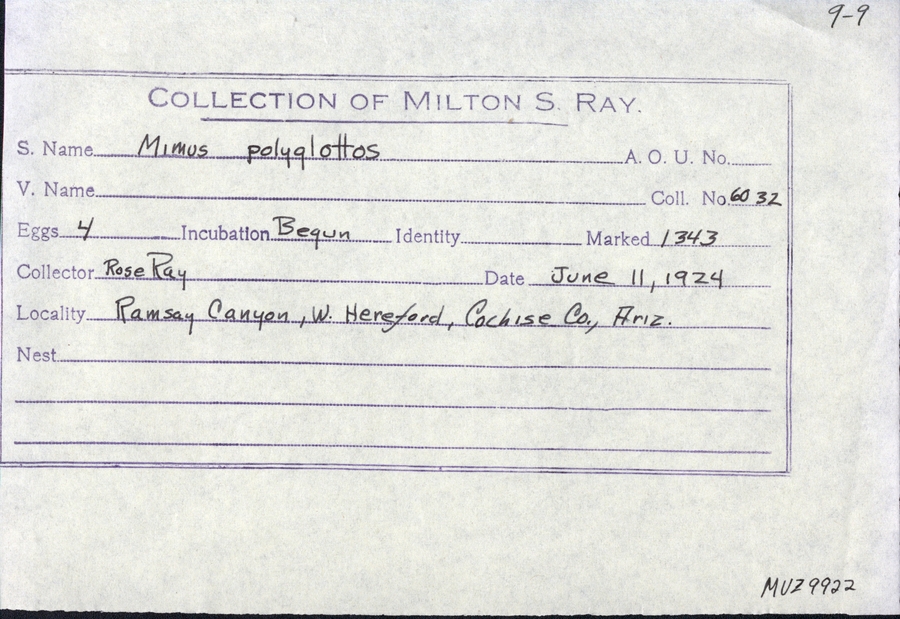 9-9
COLLECTION OF MILTON S. RAY.
S. Name Mimus polyglottos A. O. U. No.
V. Name Coll. No. 6032
Eggs 4 Incubation Begun Identity Marked 1343
Collector Rose Ray Date June 11, 1924
Locality Ramsay Canyon, W. Hereford, Cochise Co., Ariz.
Nest
MVZ 9922